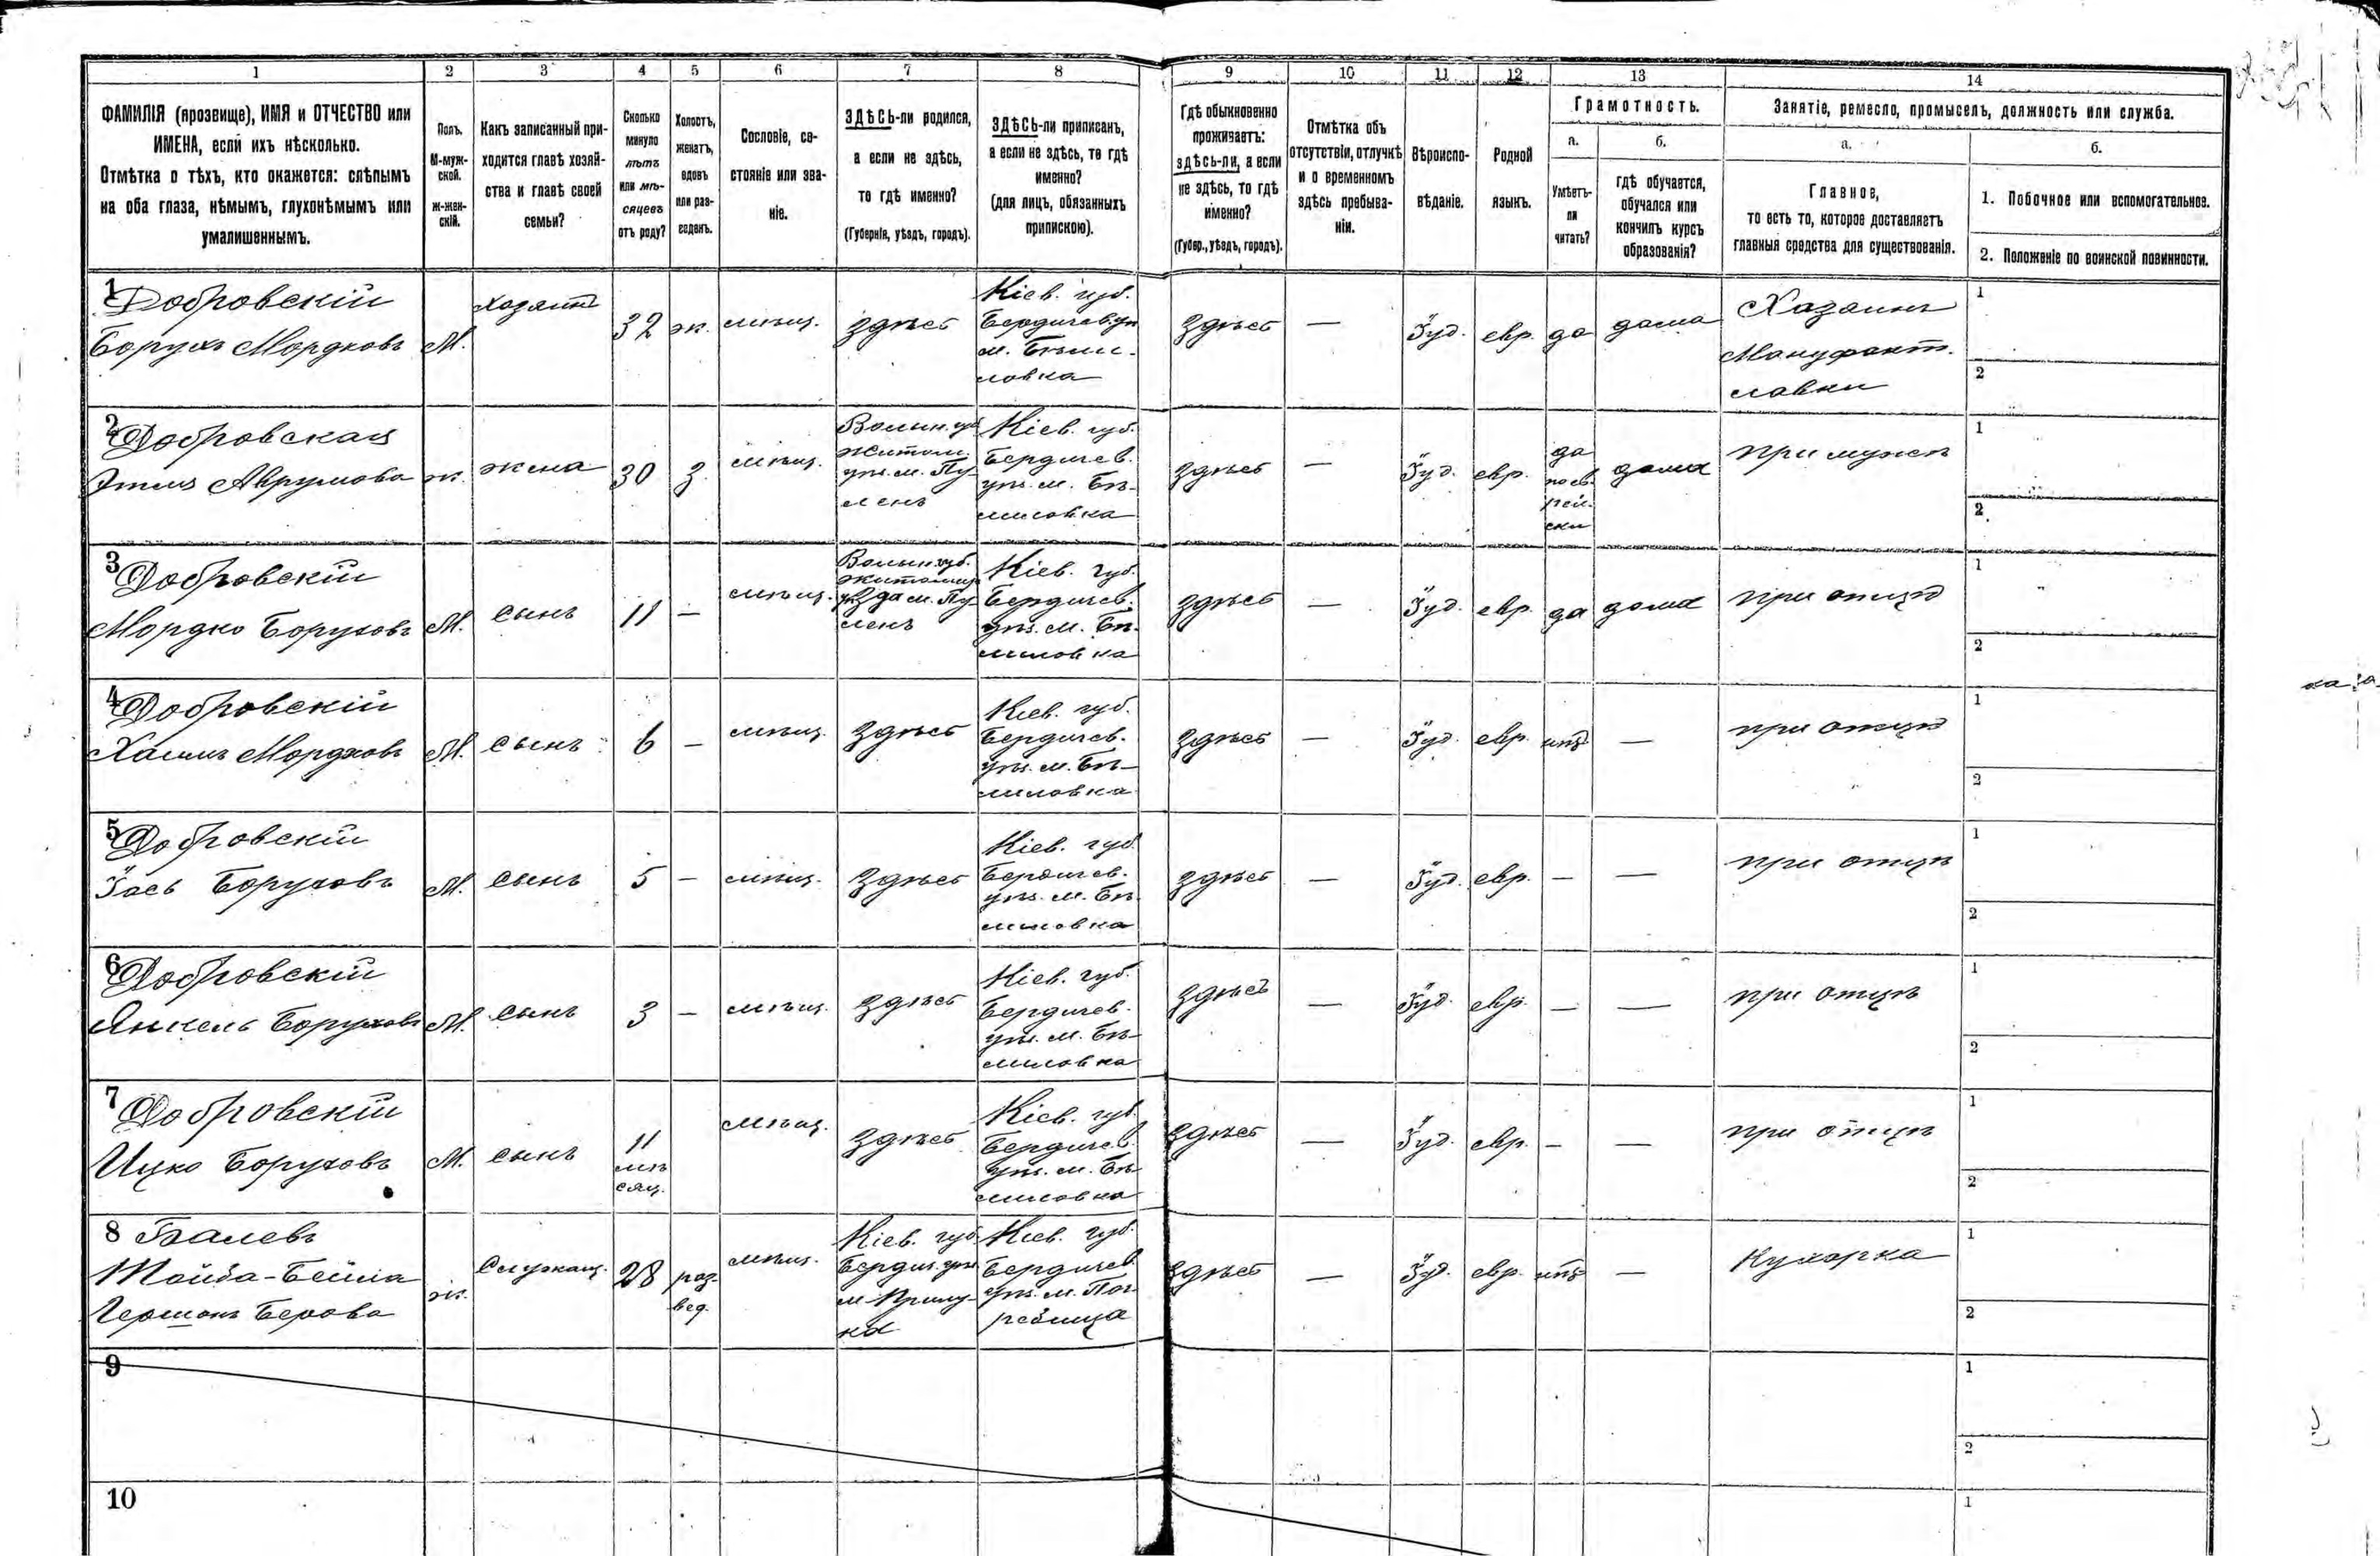 1 2 3 4 5 6 7 8 9 10 11 12 13 14
ФАМИЛІЯ (прозвище), ИМЯ и ОТЧЕСТВО или
ИМЕНА, если ихъ нѣсколько.
Отмѣтка о тѣхъ, кто окажется: слѣпымъ
на оба глаза, нѣмымъ, глухонѣмымъ или
умалишеннымъ.
Полъ.
М-муж-
ской.
Ж-жен-
скій.
Какъ записанный при-
ходится главѣ хозяй-
ства и главѣ своей
семьи?
Сколько
минуло
лѣтъ
или мѣ-
сяцевъ
отъ роду?
Холостъ,
женатъ,
вдовъ
или раз-
веденъ.
Сословіе, со-
стояніе или зва-
ніе.
ЗДѢСЬ-ли родился,
а если не здѣсь,
то гдѣ именно?
(Губернія, уѣздъ, городъ).
ЗДѢСЬ-ли приписанъ,
а если не здѣсь, то гдѣ
именно?
(для лицъ, обязанныхъ
припискою).
Гдѣ обыкновенно
проживаетъ:
здѣсь-ли, а если
не здѣсь, то гдѣ
именно?
(Губер., уѣздъ, городъ).
Отмѣтка объ
отсутствіи, отлучкѣ
и о временномъ
здѣсь пребыва-
ніи.
Вѣроиспо-
вѣданіе.
Родной
языкъ.
Грамотность.
а.
Умѣетъ-
ли
читать?
б.
гдѣ обучается,
обучался или
кончилъ курсъ
образованія?
Занятіе, ремесло, промыселъ, должность или служба.
а.
Главное,
то есть то, которое доставляетъ
главныя средства для существованія.
б.
1. Побочное или вспомогательное.
2. Положеніе по воинской повинности.
1
Добровскій
Борухъ Мордковъ
М.
хозяинъ
32
ж.
мѣщ.
здѣсь
Кіев. губ.
Бердичев. уѣ
м. Бѣли-
ловка
здѣсь
—
Іуд.
евр.
да
дома
Хазаинъ
Мануфакт.
лавки
1
2
2
Добровская
Этля Аврумова
ж.
жена
30
З.
мѣщ.
Волын. губ
Житом.
уѣз. м. Пу-
линъ
Кіев. губ.
Бердичев.
уѣз. м. Бѣ-
лиловка
здѣсь
—
Іуд.
евр.
да
по ев-
рей-
ски
дома
при мужѣ
1
2
3
Добровскій
Мордко Боруховъ
М.
сынъ
11
—
мѣщ.
Волын. губ.
Житомир
уѣзда м. Пу-
линъ
Кіев. губ.
Бердичев.
уѣз. м. Бѣ-
лиловка
здѣсь
—
Іуд.
евр.
да
дома
при отцѣ
1
2
4
Добровскій
Хаимъ Мордковъ
М.
сынъ
6
—
мѣщ.
здѣсь
Кіев. губ.
Бердичев.
уѣз. м. Бѣ-
лиловка
здѣсь
—
Іуд.
евр.
нѣтъ
—
при отцѣ
1
2
5
Добровскій
Іось Боруховъ
М.
сынъ
5
—
мѣщ.
здѣсь
Кіев. губ.
Бердичев.
уѣз. м. Бѣ-
лиловка
здѣсь
—
Іуд.
евр.
—
—
при отцѣ
1
2
6
Добровскій
Янкель Боруховъ
М.
сынъ
3
—
мѣщ.
здѣсь
Кіев. губ.
Бердичев.
уѣз. м. Бѣ-
лиловка
здѣсь
—
Іуд.
евр.
—
—
при отцѣ
1
2
7
Добровскій
Ицко Боруховъ
М.
сынъ
11
мѣ
сяц.
мѣщ.
здѣсь
Кіев. губ.
Бердичев.
уѣз. м. Бѣ-
лиловка
здѣсь
—
Іуд.
евр.
—
—
при отцѣ
1
2
8
Бейла
Гершонъ Берова
ж.
Служащ.
28
раз-
вед.
мѣщ.
Кіев. губ.
Бердич. уѣз.
м. Прилу-
ка
Кіев. губ.
Бердичев.
уѣз. м. Пог
ребища
здѣсь
—
Іуд.
евр.
нѣтъ
—
Кухарка
1
2
9
1
2
10
1